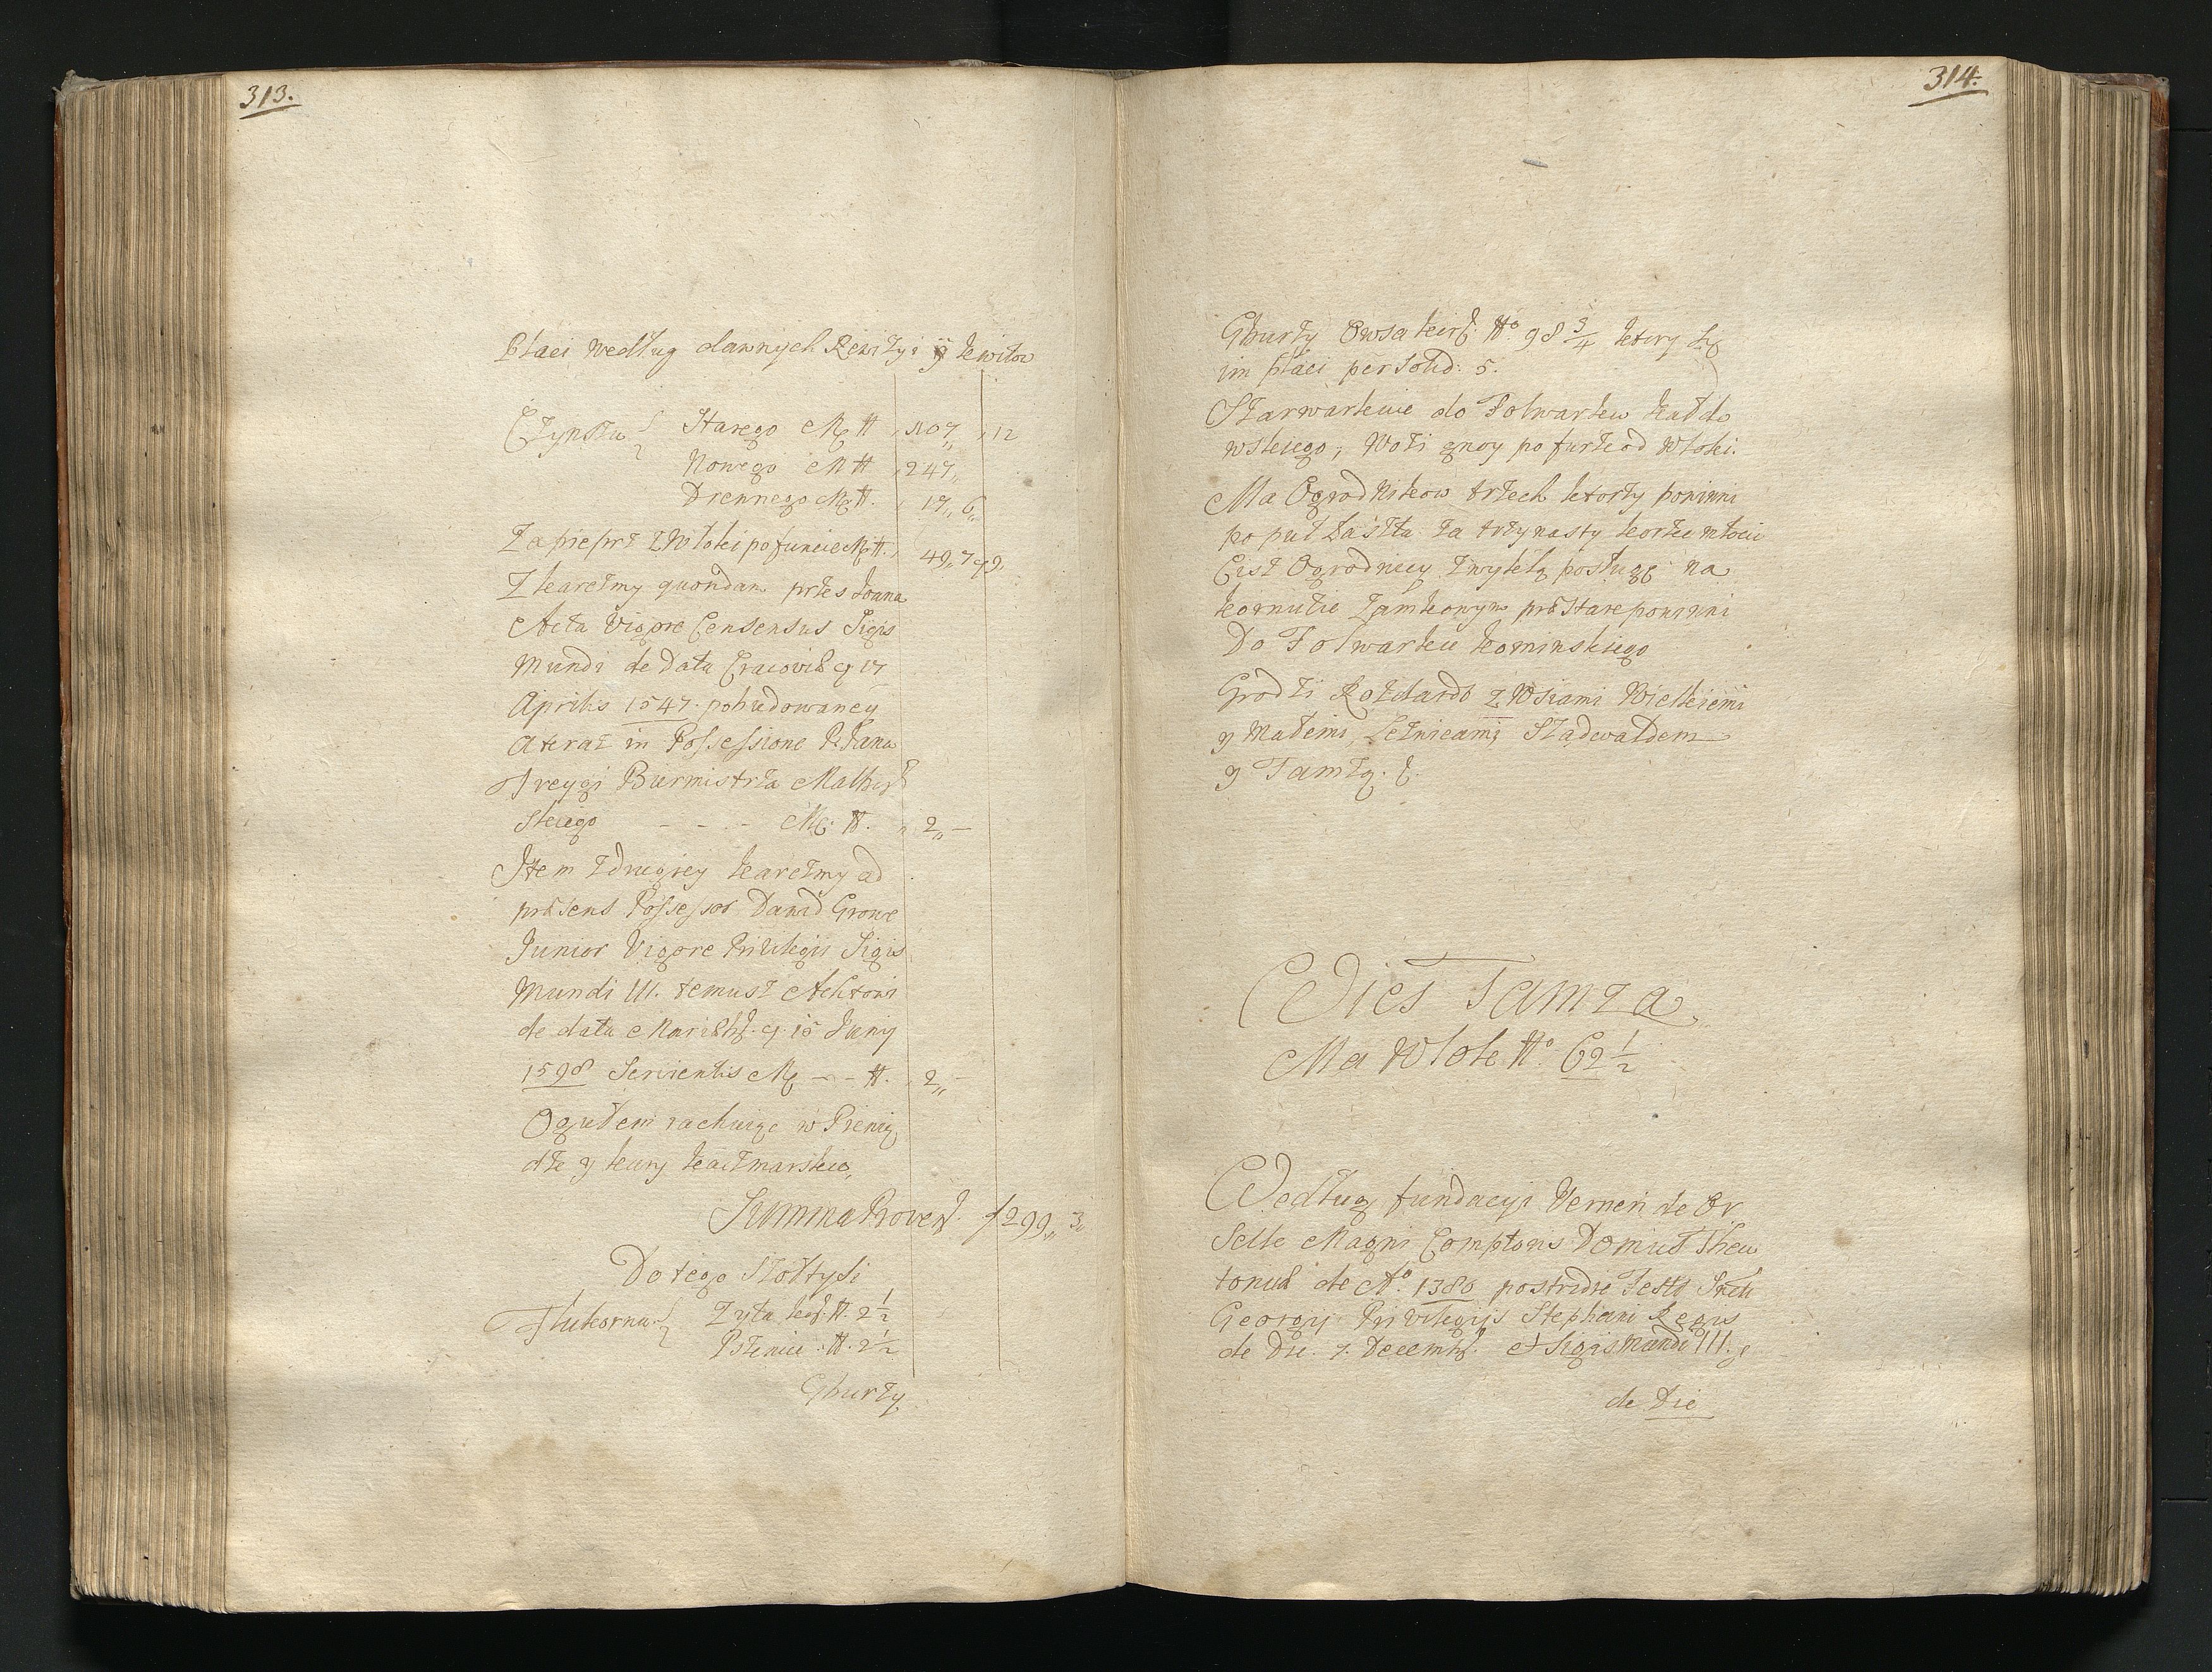 313.
Płaci według dawnych Rewizyi y kwitow
Czynszu { Starego Mg # 107,, 12
Nowego M # 247,,
Drewnego Mg #. 17,, 6,,
Za pieprz z Włoki po funcie Mg #. 49,, 7, 9.
Z karczmy quondam przes Joana
Acta Vigore Consensus Sigis
Mundi de Data Cracoviæ 17
Aprilis 1547. pobudowaney
a teraz in Possessione P. Jana
Freygi Burmistrza Malbor
skiego - - - Mg. #. 2,, -
Item z drugiey karczmy ad
præsens Possessor Dawid Growe
Junior Vigore Privilegii Sigis
Mundi III. temusz
de data Mariæb. 15 Junij
1598 Servientis Mg - - #. 2,, -
Ogułem rachuiąc w Pienią
dze y kury kaczmarskie,
Summa Provent. f 299,, 3,,
Do tego Szołtysi
Płukorna { Zyta korc. #. 2 1/2
Pszenice #. 2 1/2
Gburzy
314.
Gburzy Owsa korc. No. 98 3/4 ktory Się
im płaci per Solid: 5.
Szarwarkuie do Folwarku Kałdo
wskiego, Wozi gnoy po furze od Włoki.
Ma Ogrodnikow trzech ktorzy powinni
po puł Łaszta za trzynasty korzec młocić
Cisz Ogrodnicy zwykłą posługę na
kornucie Zamkowym præstare powinni
Do Folwarku kominskiego
Grodzi Rozdard z Wsiami Wielkiemi
y Małemi Leznicami, Sztadwaldem
y Tamzą. &.
Wies Tamza
Ma Włok No. 62 1/2
Według fundacyi Verneri de Or
Selle Magni Comptoris Domus Theu
tonicæ de Ao. 1380 postridie Festi Sncti
Georgij Privilegijs Stephani Regis
de Die. 7. Decembr. et Sigismundi III.
de Die